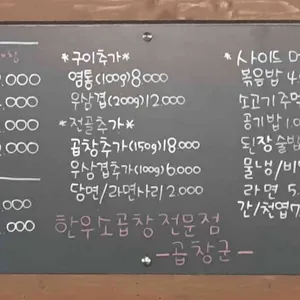 .000
.000
.000
.000
.000
.000
*구이추가*
염통(100g) 8000
우삼겹(200g) 12000
*전골추가*
곱창추가(150g) 18000
우삼겹추가(100g) 6000
당면/라면사리 2000
한우소곱창전문점
-곱창군-
*사이드
볶음밥
소고기
공기밥 1.0
된장술밥
물냉/비
라면 5.
간/천엽